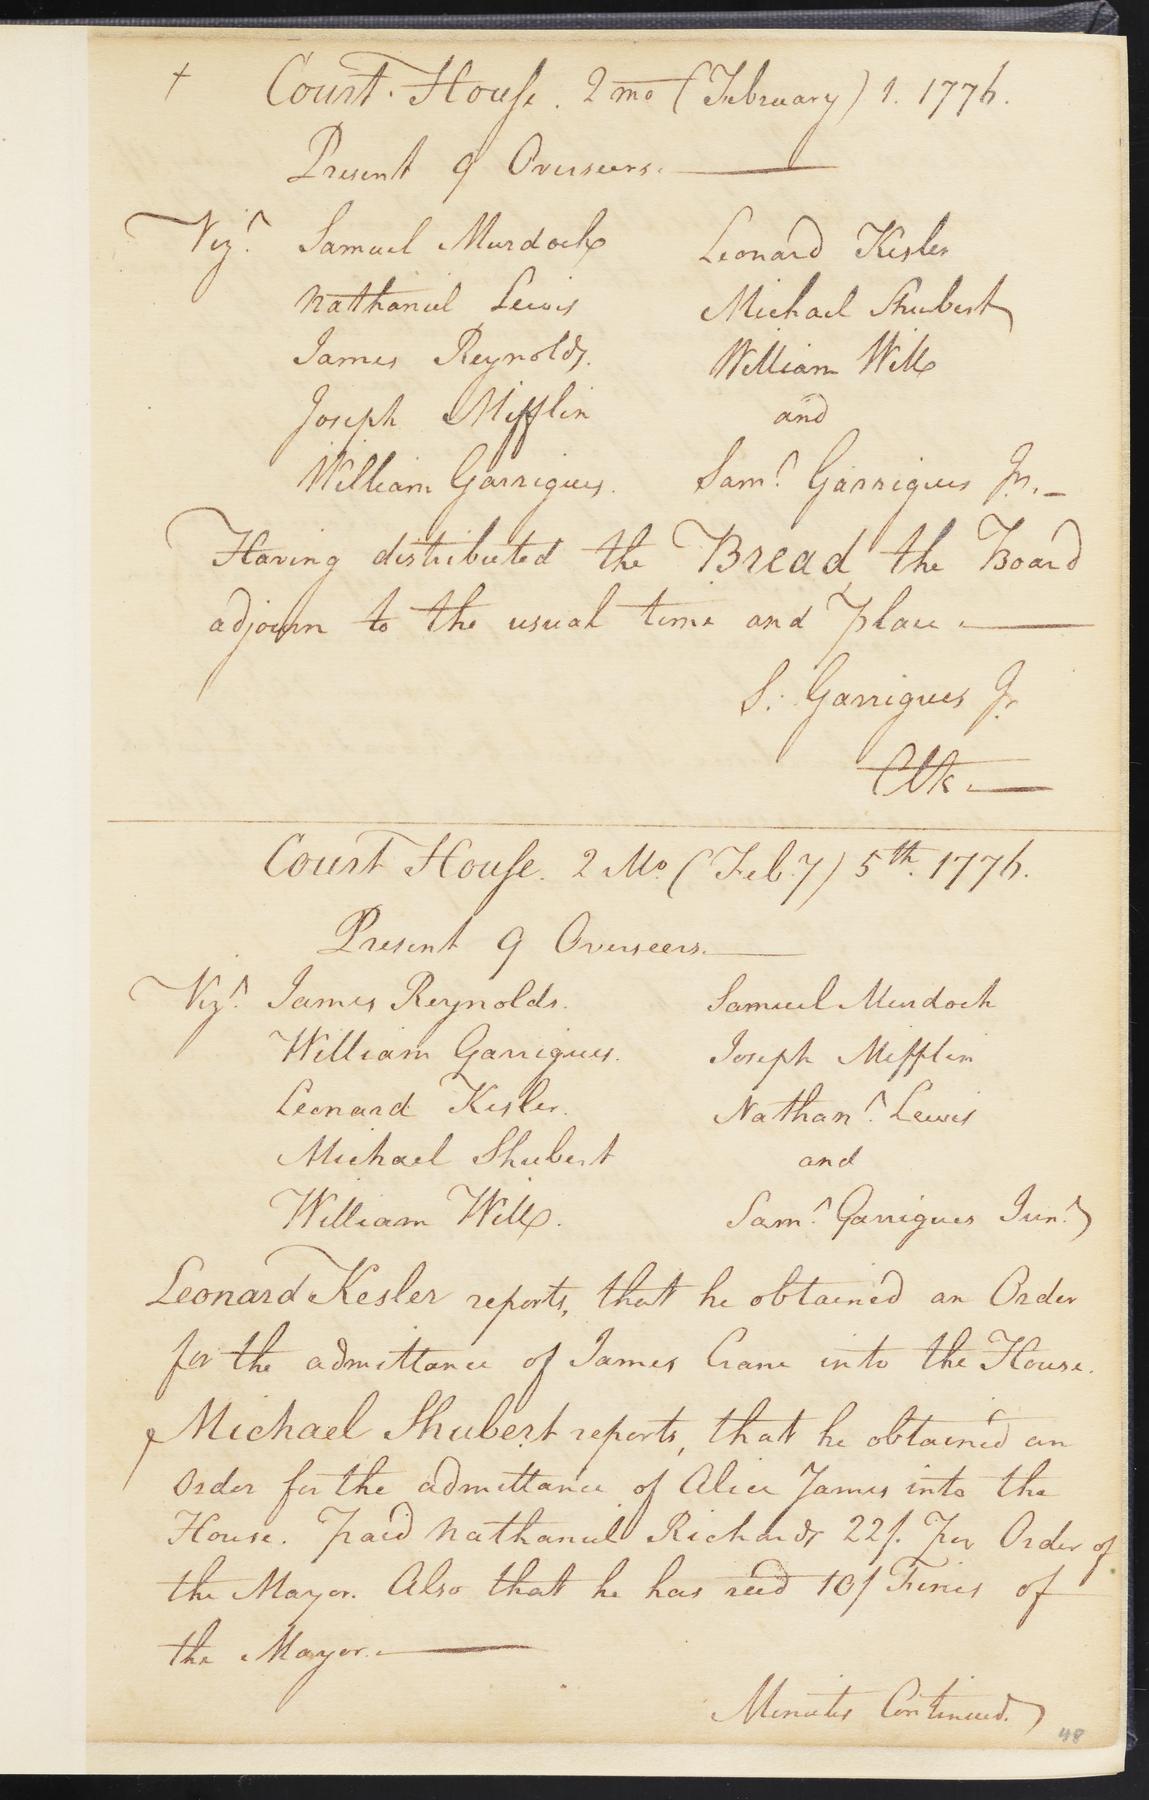 + Court House. 2 mo (February) 1. 1776.
Present 9 Overseers.
Vizt. Samuel Murdock Leonard Kesler
Nathaniel Lewis Michael Shubert
James Reynolds. William Will
Joseph Mifflin and
William Garrigues. Saml. Garrigues Jr.
Having distributed the Bread, the Board
adjourn to the usual time and place.
S. Garrigues Jr
Clk.
Court House. 2 Mo. (Feb.y) 5th. 1776.
Present 9 Overseers.
Vizt. James Reynolds. Samuel Murdock
William Garrigues. Joseph Mifflin
Leonard Kesler. Nathanl. Lewis
Michael Shubert and
William Will. Saml. Garrigues Junr.
Leonard Kesler reports, that he obtained an Order
for the admittance of James Crane into the House.
Michael Shubert reports, that he obtained an
Order for the admittance of Alice James into the
House. paid Nathaniel Richards 22/. per Order of
the Mayor. Also that he has recd 10/ Fines of
the Mayor.
Minutes Continued.
48